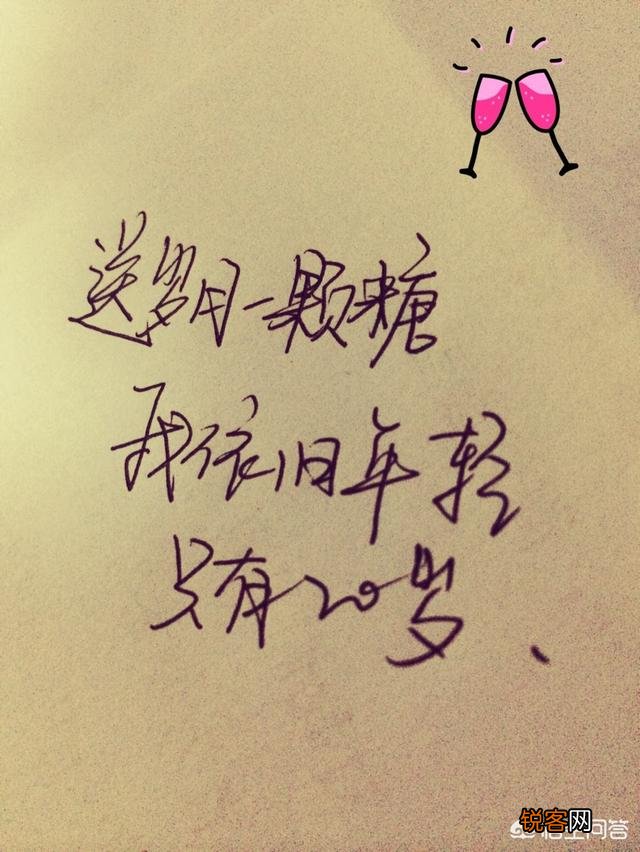 送岁月一颗糖
我依旧年轻
只有20岁、
锐客网
悟空问答